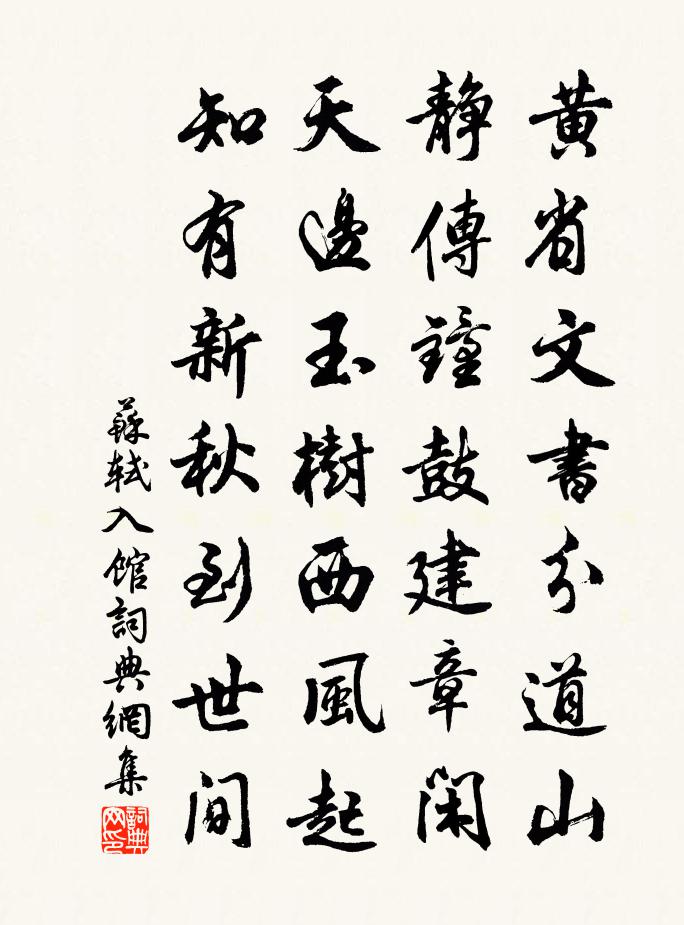 黄省文書分道山
静傳鐘鼓建章閑
天邊玉樹西風起
知有新秋到世間
蘇軾入館詞典網集
詞典网印